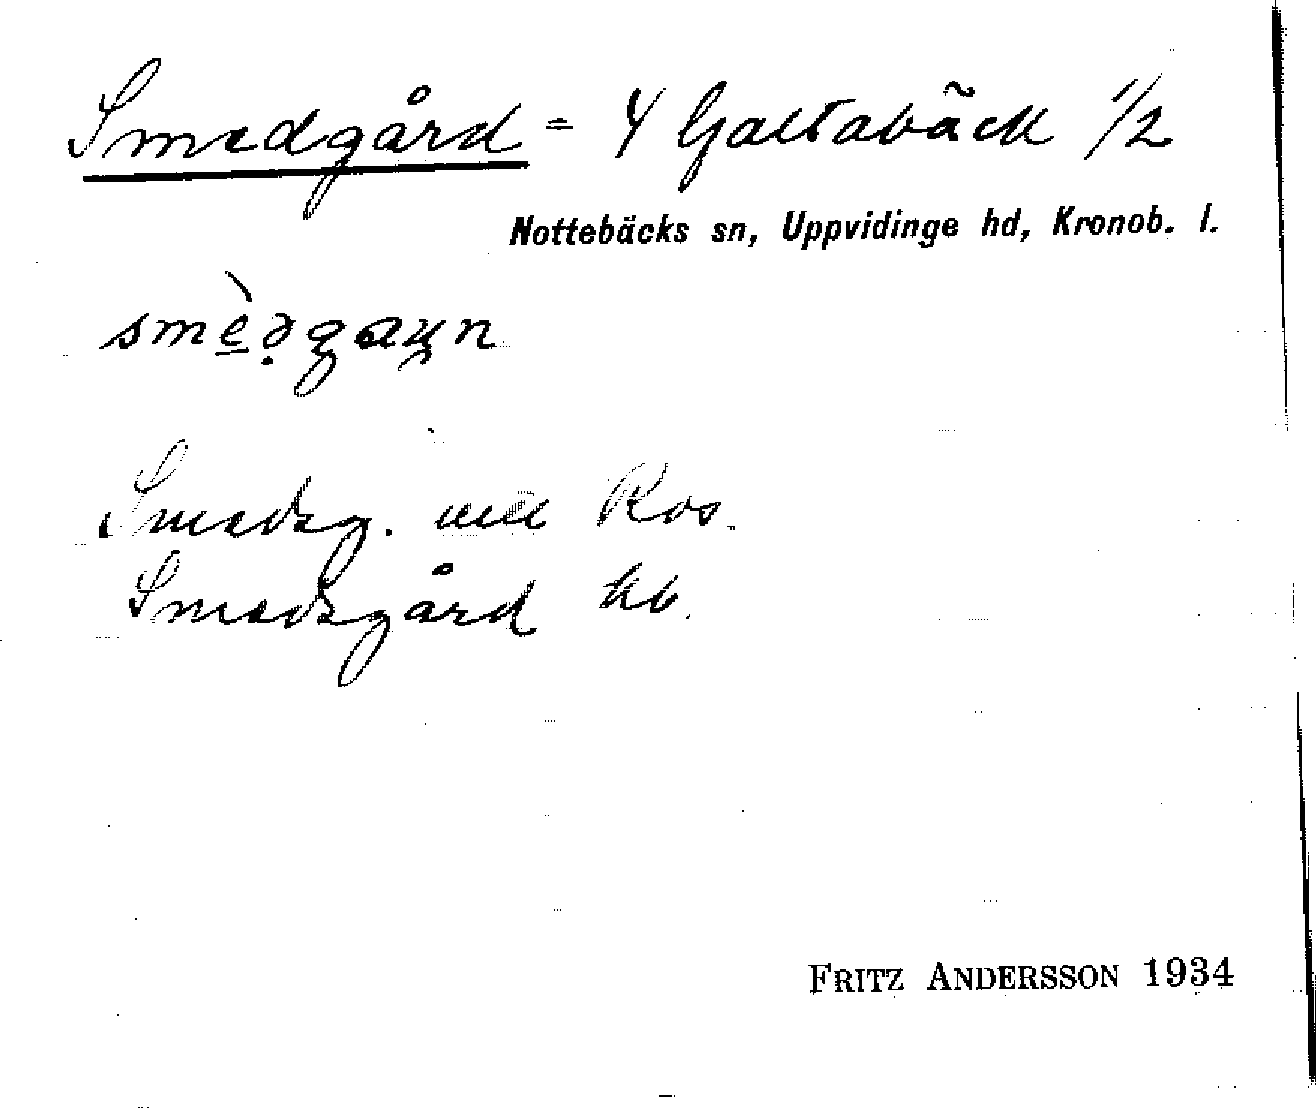 Smedgård = Y Galtabäck 1/2
Nottebäcks sn, Uppvidinge hd, Kronob. l.
Smedsg. Ros.
Smedsgård hb.
FRITZ ANDERSSON 1934